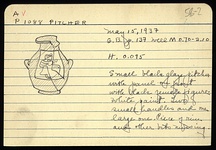 A V
P 1088 PITCHER
May 15, 1937
G. B. gr. 137 well M 0.70-2.10
H. 0.095
Small black glaze pitcher
with panel in front
with black figures
white paint. Two
small handles and one
large one. Piece of rim
and other bits missing.